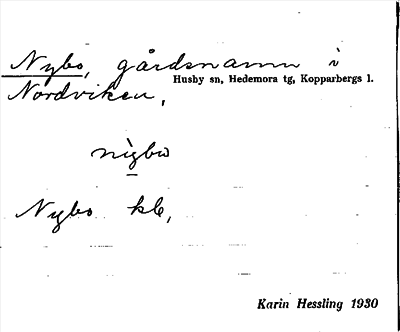 Nybo, gårdsnamn i
Husby sn, Hedemora tg, Kopparbergs l.
Nordviken,
nìgbω
Nybo kb,
Karin Hessling 1930